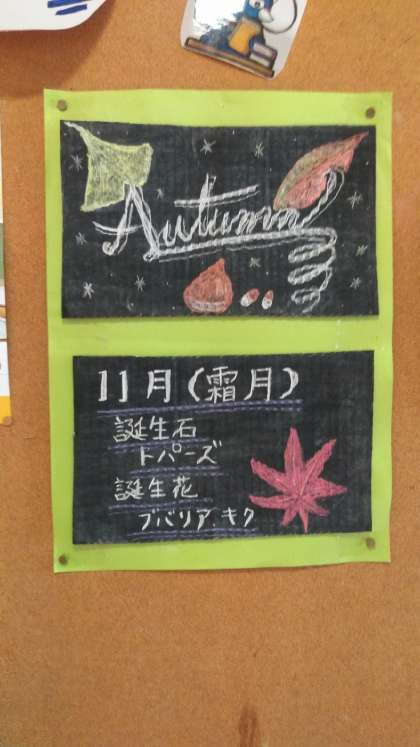 Autumn
11月(霜月)
誕生石
トパーズ
誕生花
ブバリア.キク